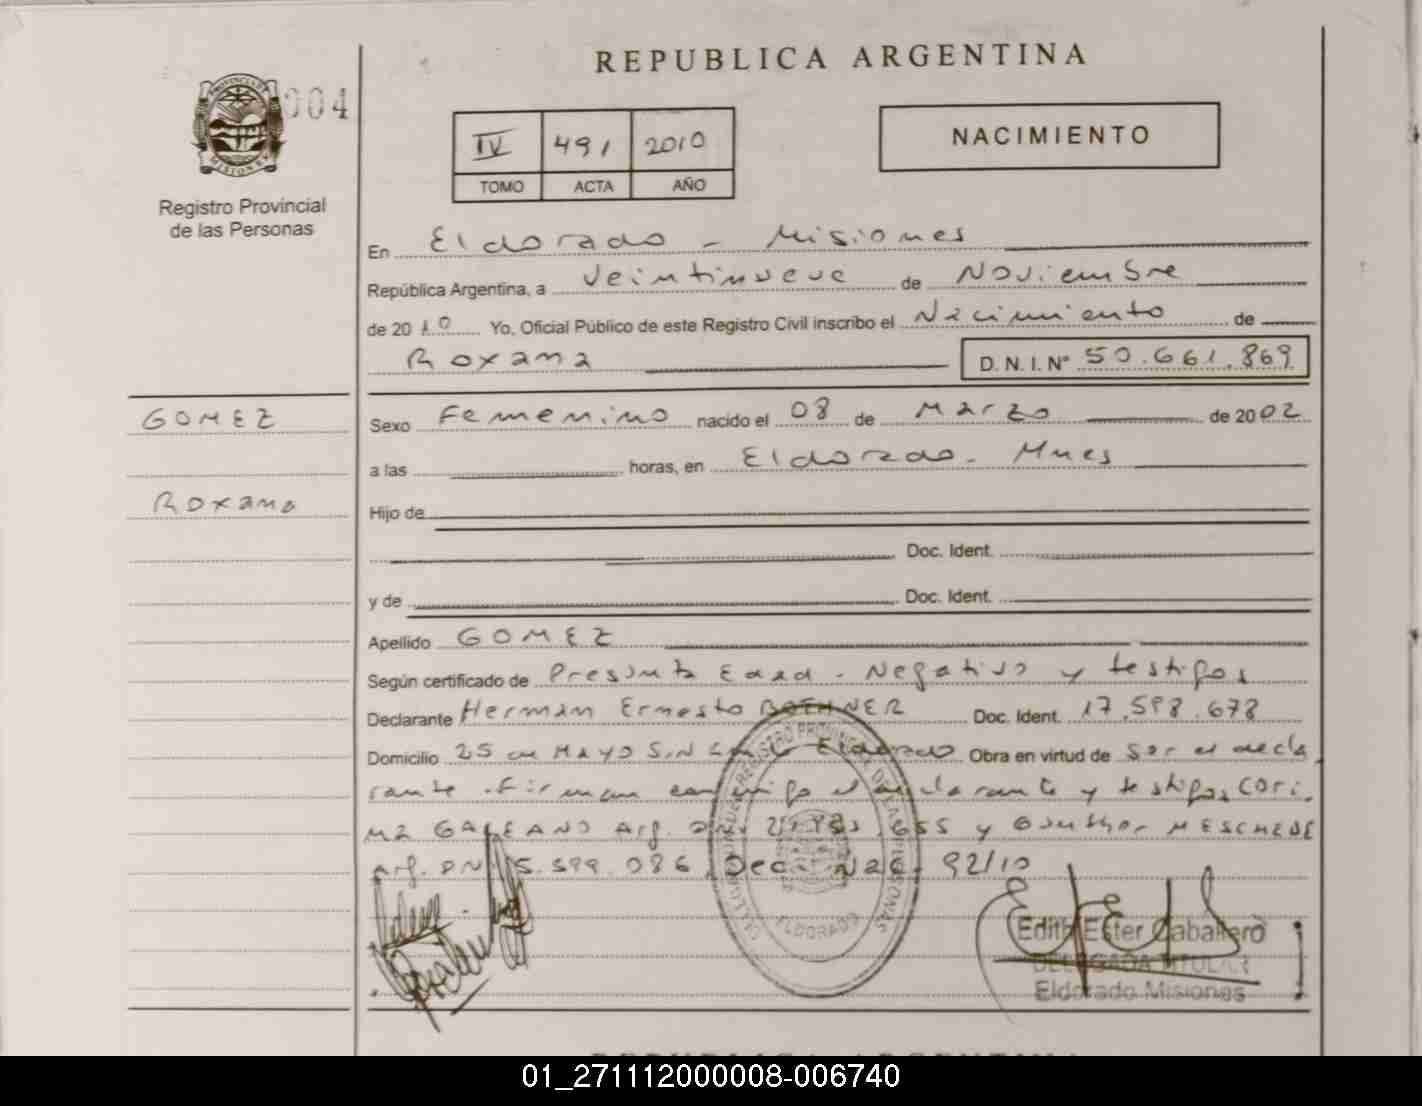 REPUBLICA ARGENTINA
PROVINCIA DE
MISIONES
004
Registro Provincial
de las Personas
IV 491 2010
TOMO ACTA AÑO
NACIMIENTO
En Eldorado - Misiones
República Argentina, a Veintinueve de Noviembre
de 2010 Yo, Oficial Público de este Registro Civil inscribo el Nacimiento de
Roxana D. N. I. Nº 50.661.869
GOMEZ
Roxana
Sexo Femenino nacido el 08 de Marzo de 2002
a las horas, en Eldorado - Mnes
Hijo de
Doc. Ident.
y de Doc. Ident.
Apellido GOMEZ
Según certificado de Presunta Edad - Negativo y testigos
Declarante Herman Ernesto BOEHNER Doc. Ident. 17.598.678
Domicilio 25 de MAYO S/N Eldorado Obra en virtud de Ser el decla
rante . Firman conmigo el declarante y testigos Cori.
MZ GALEANO Arg. DNI 655 y Gunther MESCHEDE
Arg. DNI 5.599.086 Dec. Nac. 92/10
ELDORADO
Edith Ester Caballero
DELEGADA TITULAR
Eldorado Misiones
REPUBLICA ARGENTINA
01_271112000008-006740